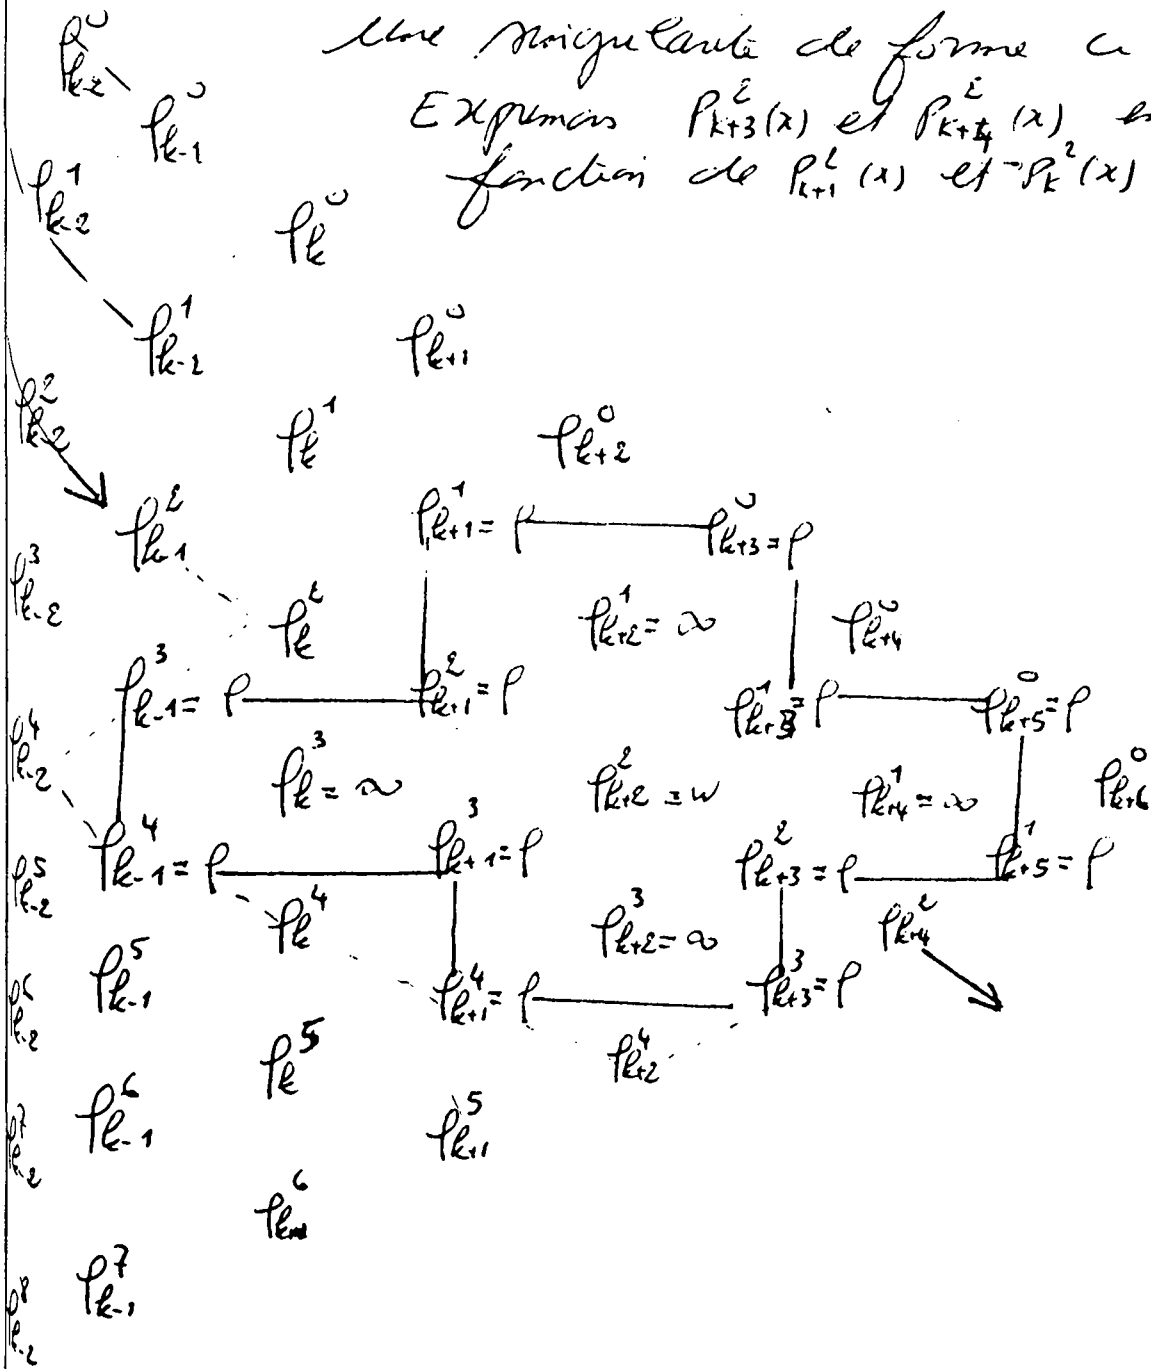 Une singularité de forme
Exprimons P_{k+3}^2(x) et P_{k+4}^2(x) en
fonction de P_{k+1}^2(x) et P_k^2(x)
ρ_{k-2}^0
ρ_{k-1}^0
ρ_{k-2}^1
ρ_k^0
ρ_{k-2}^1 ρ_{k+1}^0
ρ_{k-2}^2
ρ_k^1 ρ_{k+2}^0
ρ_{k-1}^2 ρ_{k+1}^1 = ρ ρ_{k+3}^0 = ρ
ρ_{k-2}^3
ρ_k^2 ρ_{k+2}^1 = ∞ ρ_{k+4}^0
ρ_{k-1}^3 = ρ ρ_{k+1}^2 = ρ ρ_{k+3}^1 = ρ ρ_{k+5}^0 = ρ
ρ_{k-2}^4
ρ_k^3 = ∞ ρ_{k+2}^2 = w ρ_{k+4}^1 = ∞ ρ_{k+6}^0
ρ_{k-1}^4 = ρ ρ_{k+1}^3 = ρ ρ_{k+3}^2 = ρ ρ_{k+5}^1 = ρ
ρ_{k-2}^5
ρ_k^4 ρ_{k+2}^3 = ∞ ρ_{k+4}^2
ρ_{k-1}^5 ρ_{k+1}^4 = ρ ρ_{k+3}^3 = ρ
ρ_{k-2}^6
ρ_k^5 ρ_{k+2}^4
ρ_{k-1}^6 ρ_{k+1}^5
ρ_{k-2}^7
ρ_{k-1}^7
ρ_{k-2}^8